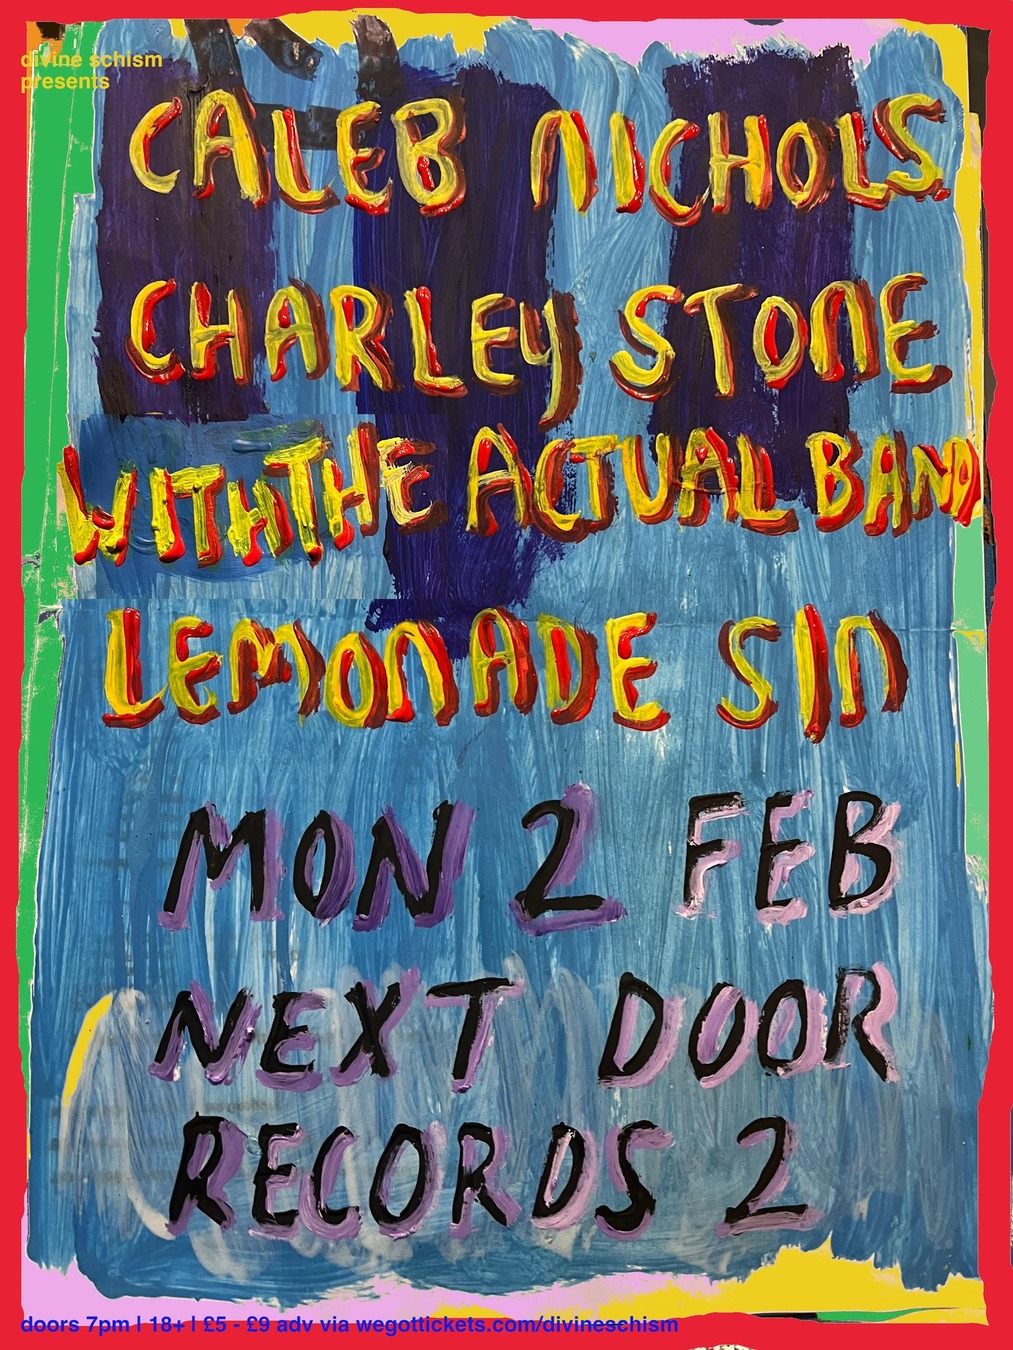 divine schism
presents
CALEB NICHOLS
CHARLEY STONE
WITH THE ACTUAL BAND
LEMONADE SIN
MON 2 FEB
NEXT DOOR
RECORDS 2
doors 7pm | 18+ | £5 - £9 adv via wegottickets.com/divineschism